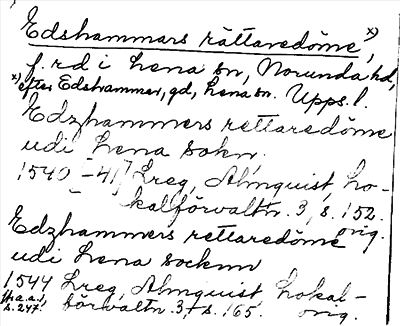 Edshammars rättaredöme, x)
f. rd i Lena sn, Norunda hd,
x) efter Edshammar, gd, Lena sn. Upps. l.
Edzhammers rettaredöme
udi Lena sokn.
1540-41, Lreg, Almquist, Lo-
kalförvaltn. 3, s. 152.
orig.
Edzhammers rettaredöme
udi Lena socknn
1544 Lreg, Almquist Lokal-
förvaltn. 3, s. 165. orig.
s. 247.